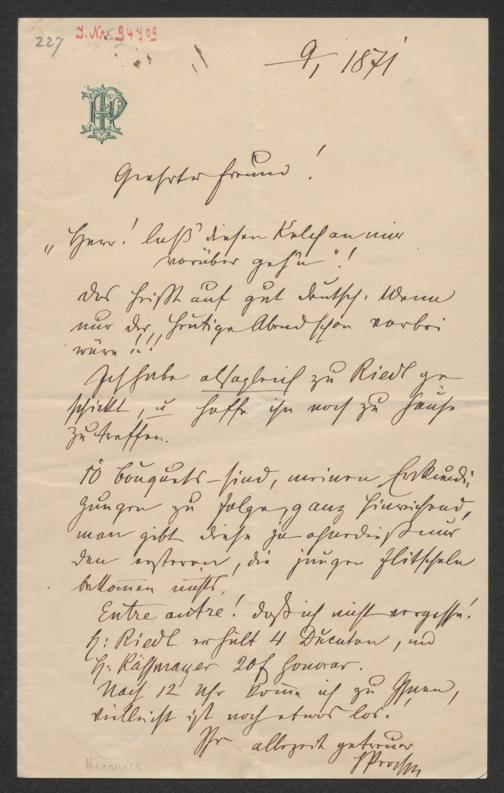 227
J.Nr. 94709
9/1 1871
HP
Geehrter Freund!
„Herr! laß diesen Kelch an mir
vorüber geh'n"!
das heißt auf gut deutsch: Wenn
nur der heutige Abend schon vorbei
wäre!!!
Ich habe alsogleich zu Riedl ge-
schickt, u hoffe ihn noch zu Hause
zu treffen.
10 bouquets – sind, meinen Erkundi-
gungen zu folge, ganz hinreichend,
man gibt diese ja ohnedieß nur
den ersteren, die jungen Flitscheln
bekommen nichts.
Entre autre! daß ich nicht vergesse!
H: Riedl erhält 4 Ducaten, und
H: Käßmayer 20 f honorar.
Nach 12 Uhr komme ich zu Ihnen,
vielleicht ist noch etwas los.
Ihr allezeit getreuer
HProch
Heinrich